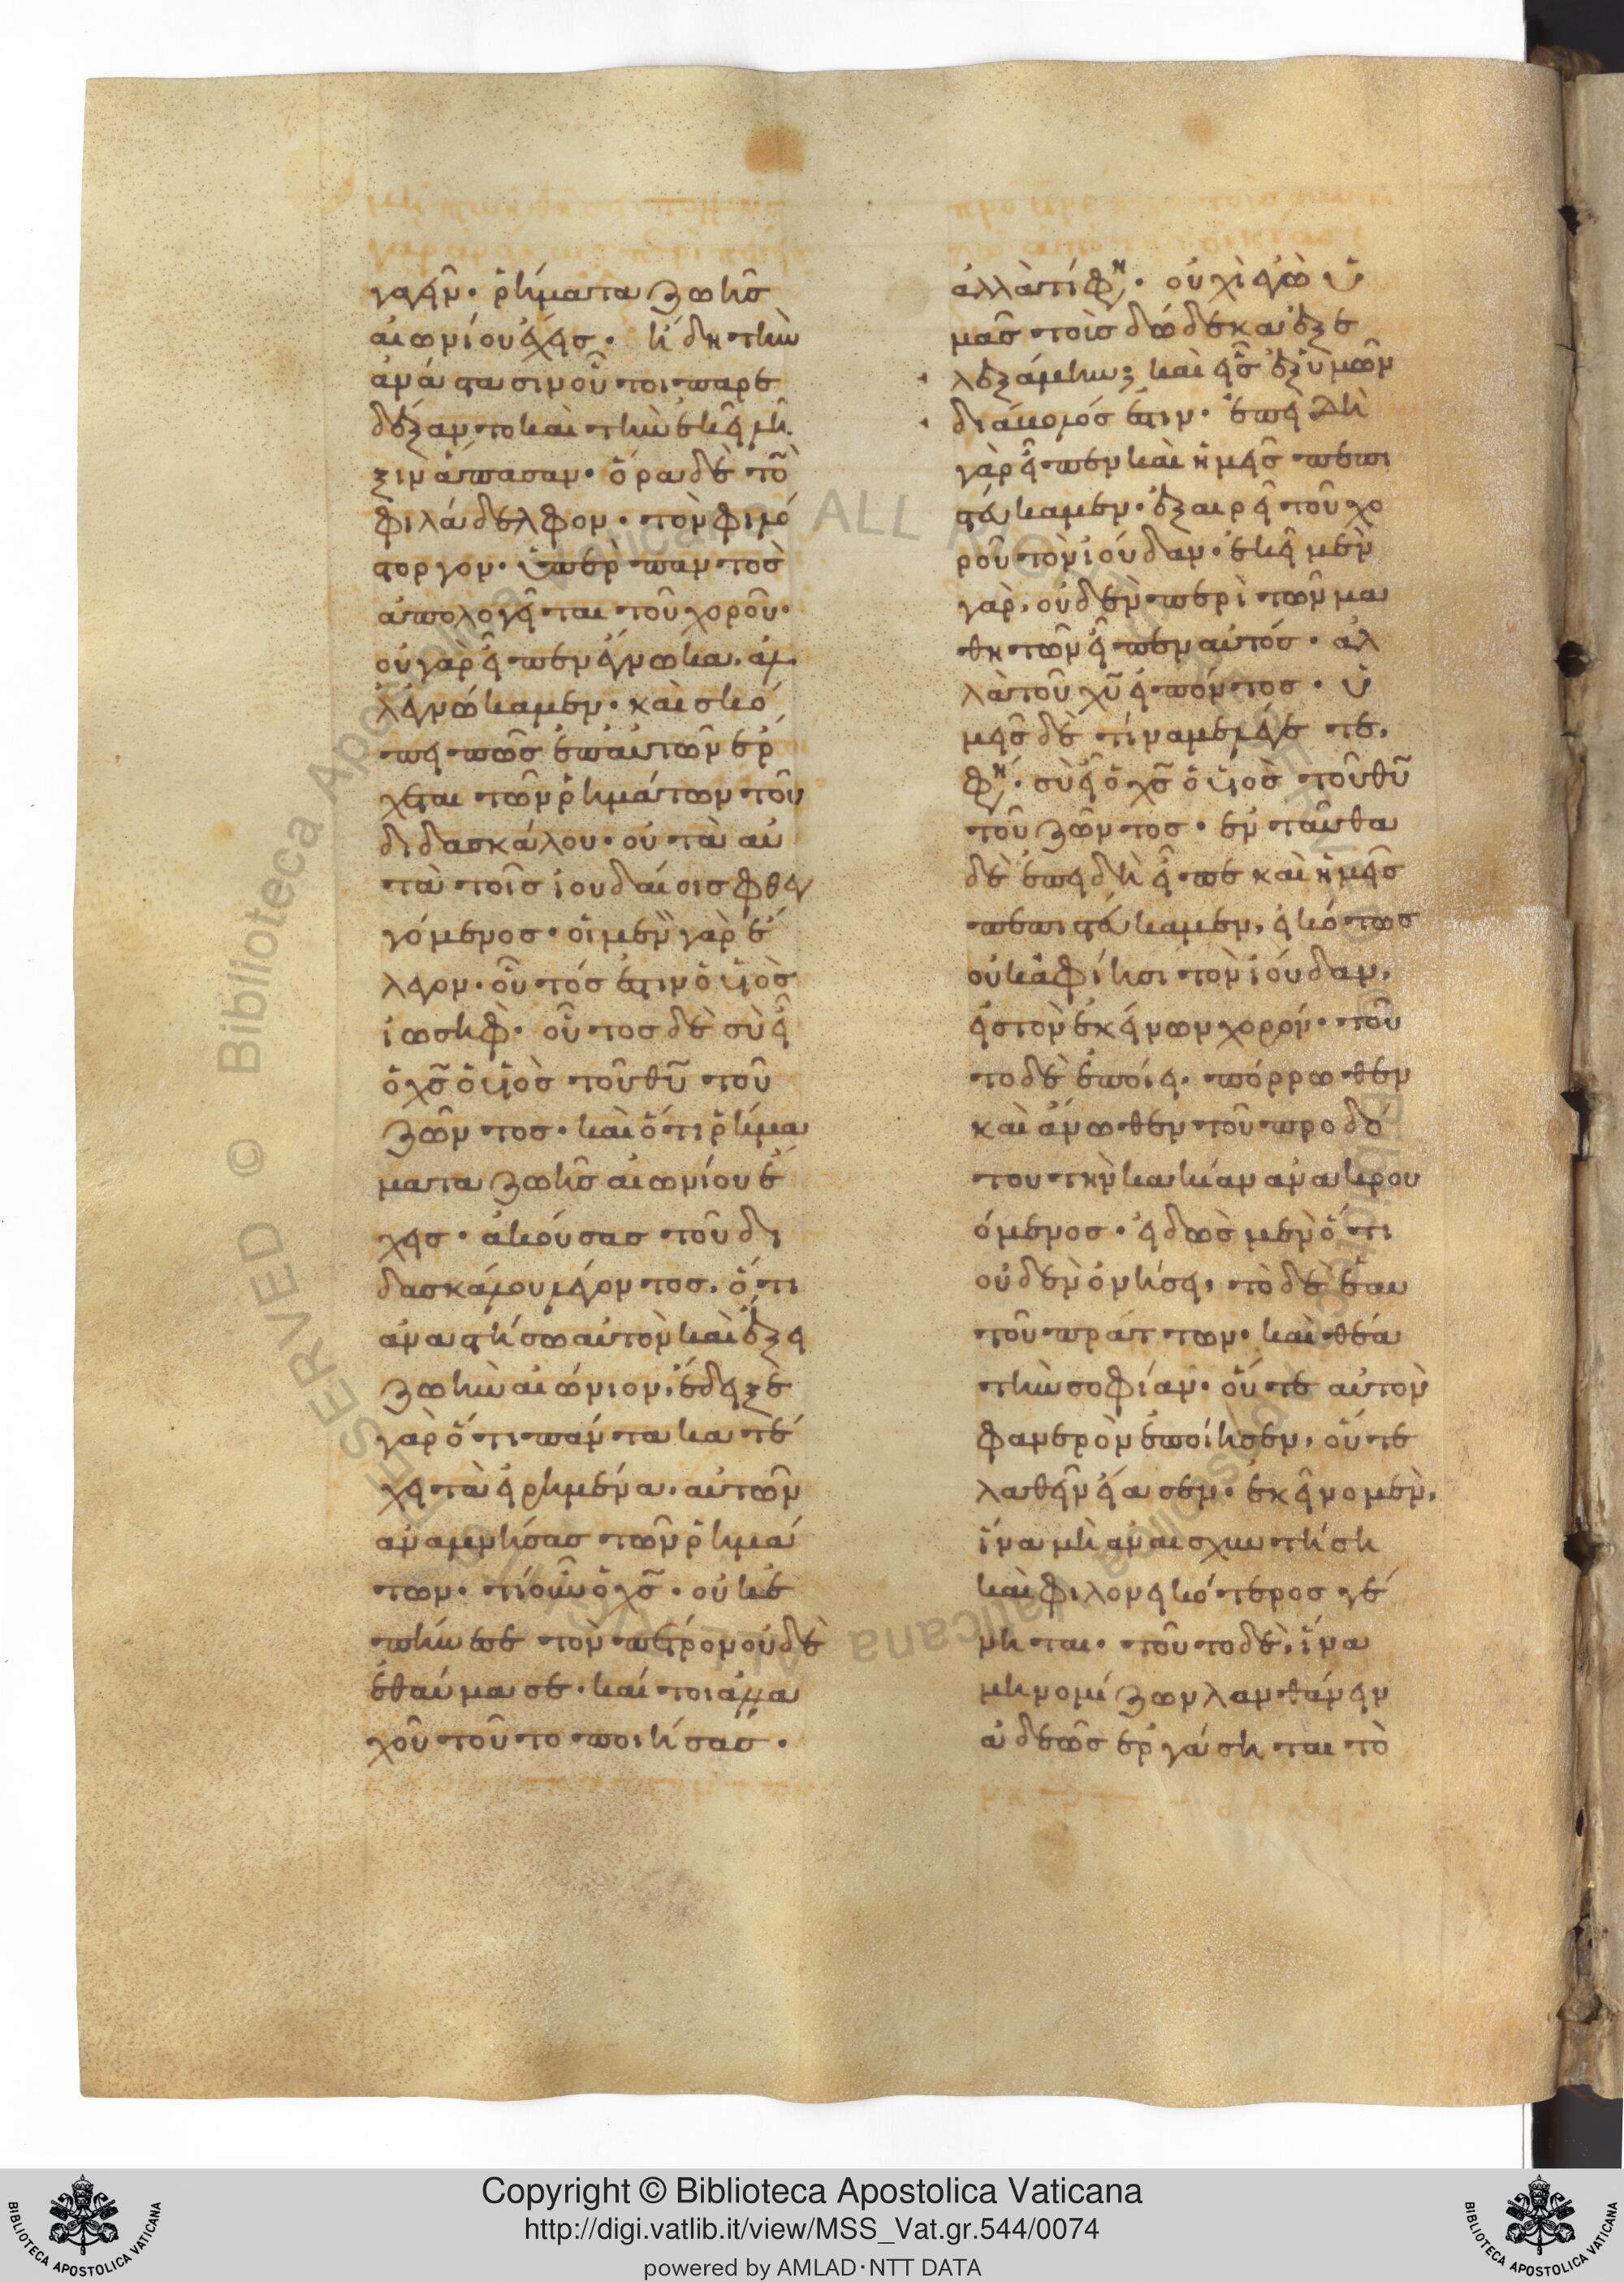 γαγεῖν· ῥήματα ζωῆς
αἰωνίου ἔχεις· ἤδη τὴν
ἀνάστασιν οὗτοι παρε
δέξαντο καὶ τὴν ἐκεῖ λῆ
ξιν ἅπασαν· ὅρα δὲ τὸ
φιλάδελφον· τὸν φιλό
στοργον· ὑπὲρ παντὸς
ἀπολογεῖται τοῦ χοροῦ·
οὐ γὰρ εἶπεν ἔγνωκα, ἀλ
λ' ἐγνώκαμεν· καὶ σκό
πει πῶς ἐπ' αὐτῶν ἔρ
χεται τῶν ῥημάτων τοῦ
διδασκάλου· οὐ τὰ αὐ
τὰ τοῖς ἰουδαίοις φθεγ
γόμενος· οἱ μὲν γὰρ ἔ
λεγον· οὗτός ἐστιν ὁ υἱὸς
ἰωσήφ· οὗτος δὲ σὺ εἶ
ὁ χς ὁ υἱὸς τοῦ θυ τοῦ
ζῶντος· καὶ ὅτι ῥήμα
ματα ζωῆς αἰωνίου ἔ
χεις· ἀκούσας τοῦ δι
δασκάλου λέγοντος, ὅτι
ἀναστήσω αὐτὸν καὶ ἕξει
ζωὴν αἰώνιον, ἔδειξε
γὰρ ὅτι πάντα κατέ
χει τὰ εἰρημένα, αὐτῶν
ἀναμνήσας τῶν ῥημά
των· τί οὖν ὁ χς· οὐκ ἐ
πῄνεσε τὸν πέτρον οὐδὲ
ἐθαύμασε· καί τοι ἀλλα
χοῦ τοῦτο ποιήσας·
ἀλλὰ τί φη· οὐχὶ ἐγὼ ὑ
μᾶς τοὺς δώδεκα ἐξε
λεξάμην; καὶ εἷς ἐξ ὑμῶν
διάβολός ἐστιν· ἐπειδὴ
γὰρ εἶπεν καὶ ἡμεῖς πεπι
στεύκαμεν· ἐξαιρεῖ τοῦ χο
ροῦ τὸν ἰούδαν· ἐκεῖ μὲν
γὰρ, οὐδὲν περὶ τῶν μα
θητῶν εἶπεν αὐτός· ἀλ
λὰ τοῦ χυ εἰπόντος· ὑ
μεῖς δὲ τίνα με λέγετε,
φη· σὺ εἶ ὁ χς ὁ υἱὸς τοῦ θυ
τοῦ ζῶντος· ἐνταῦθα
δὲ ἐπειδὴ εἶπε καὶ ἡμεῖς
πεπιστεύκαμεν, εἰκότως
οὐκ ἀφίησι τὸν ἰούδαν,
εἰς τὸν ἐκείνων χορόν· τοῦ
το δὲ ἐποίει, πόρρωθεν
καὶ ἄνωθεν τοῦ προδό
του τὴν κακίαν ἀνακρου
όμενος· εἰδὼς μὲν ὅτι
οὐδὲν ὀνήσει, τὸ δὲ ἑαυ
τοῦ πράττων· καὶ θέα
τὴν σοφίαν· οὔτε αὐτὸν
φανερὸν ἐποίησεν, οὔτε
λαθεῖν εἴασεν· ἐκεῖνο μὲν,
ἵνα μὴ ἀναισχυντήσῃ
καὶ φιλονεικότερος γέ
νηται· τοῦτο δὲ, ἵνα
μὴ νομίζων λανθάνειν
ἀδεῶς ἐργάσηται τὸ
Copyright © Biblioteca Apostolica Vaticana
http://digi.vatlib.it/view/MSS_Vat.gr.544/0074
powered by AMLAD·NTT DATA
BIBLIOTECA APOSTOLICA VATICANA
BIBLIOTECA APOSTOLICA VATICANA